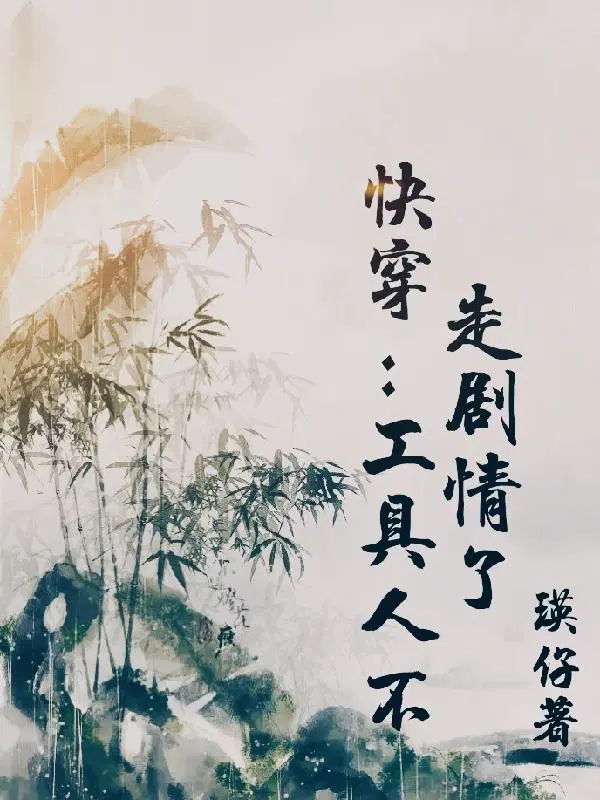 快穿：工具人不
走剧情了
瑛仔著